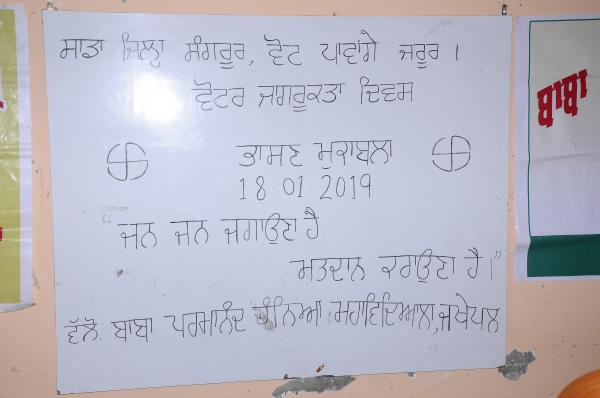 ਸਾਡਾ ਜਿਲ੍ਹਾ ਸੰਗਰੂਰ, ਵੋਟ ਪਾਵਾਂਗੇ ਜਰੂਰ ।
ਵੋਟਰ ਜਾਗਰੂਕਤਾ ਦਿਵਸ
ਭਾਸਣ ਮੁਕਾਬਲਾ
18.01.2019
"ਜਨ ਜਨ ਜਗਾਉਣਾ ਹੈ
ਮਤਦਾਨ ਕਰਾਉਣਾ ਹੈ।"
ਵੱਲੋਂ ਬਾਬਾ ਪਰਮਾਨੰਦ ਕੰਨਿਆ ਮਹਾਂਵਿਦਿਆਲਾ, ਜਖੇਪਲ
ਬਾਬਾ